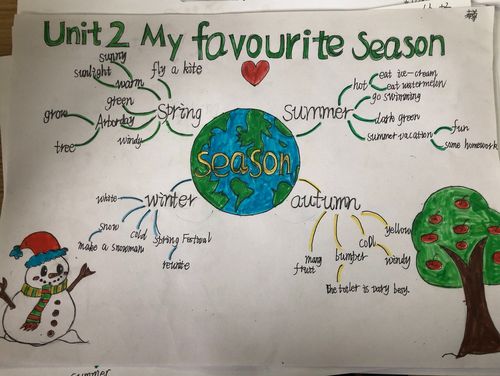 Unit 2 My favourite Season
sunny
sunlight
warm
fly a kite
green
Spring
grow
Arborday
tree
windy
Summer
hot
eat ice-cream
eat watermelon
go swimming
dark green
summer vacation
fun
some homework
season
winter
white
snow
cold
make a snowman
Spring Festival
reunite
autumn
yellow
cold
windy
many
fruit
bumper
summer